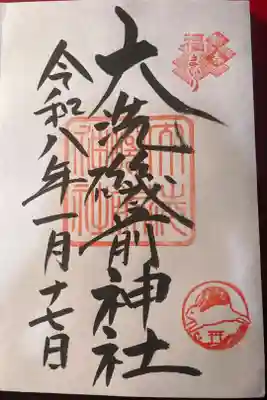 大洗磯前神社
令和八年一月十七日